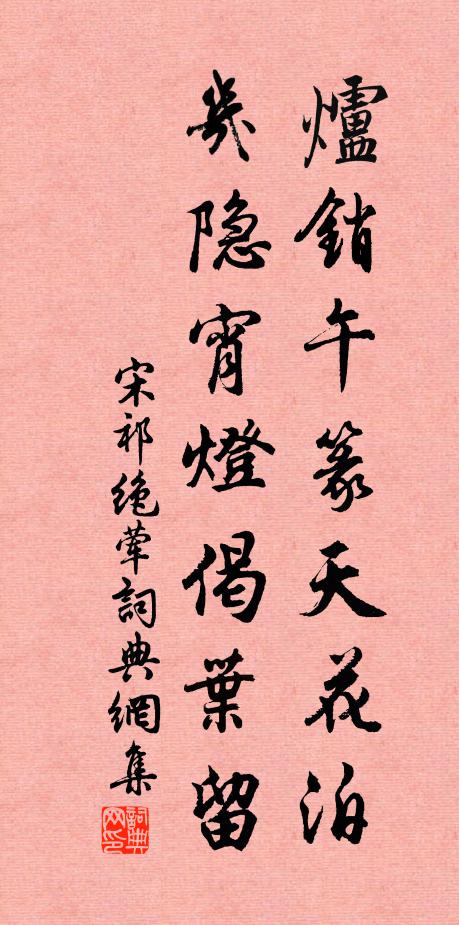 爐銷午篆天花泊
幾隐宵燈偈葉留
宋祁绝荤詞典網集
詞典网印